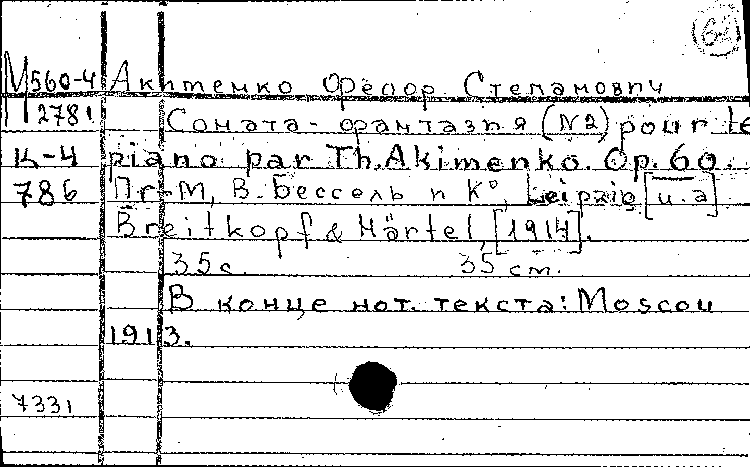 62
М560-4 Акименко Фёдор Степанович
2781 Соната-фантазия (N2) pour le
К-4 piano par Th. Akimenko. Op. 60.
786 Пг.-М, В. Бессель и К°, Leipzig [u. a]
Breitkopf & Härtel, [1914].
35 с. 35 см.
В конце нот. текста: Moscou
1913.
7331